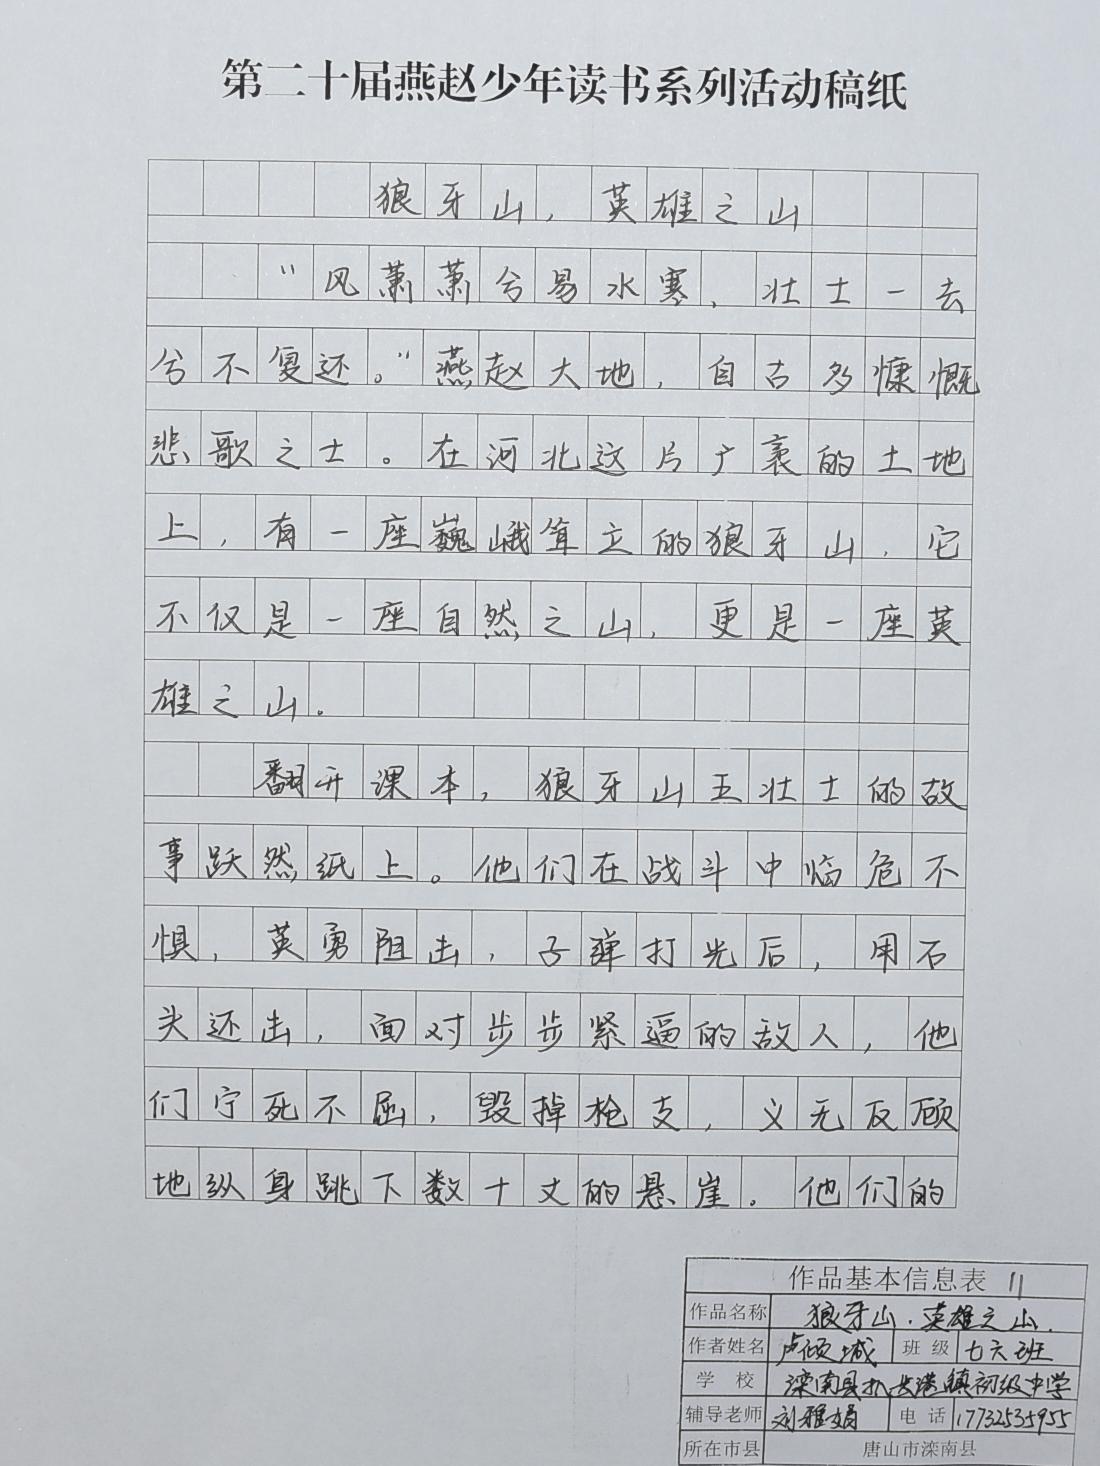 第二十届燕赵少年读书系列活动稿纸
狼牙山，英雄之山
“风萧萧兮易水寒，壮士一去
兮不复还。”燕赵大地，自古多慷慨
悲歌之士。在河北这片广袤的土地
上，有一座巍峨耸立的狼牙山，它
不仅是一座自然之山，更是一座英
雄之山。
翻开课本，狼牙山五壮士的故
事跃然纸上。他们在战斗中临危不
惧，英勇阻击，子弹打光后，用石
头还击，面对步步紧逼的敌人，他
们宁死不屈，毁掉枪支，义无反顾
地纵身跳下数十丈的悬崖。他们的
作品基本信息表 11
作品名称 狼牙山，英雄之山
作者姓名 卢倾城 班级 七六班
学校 滦南县扒齿港镇初级中学
辅导老师 刘雅娟 电话 17732535955
所在市县 唐山市滦南县